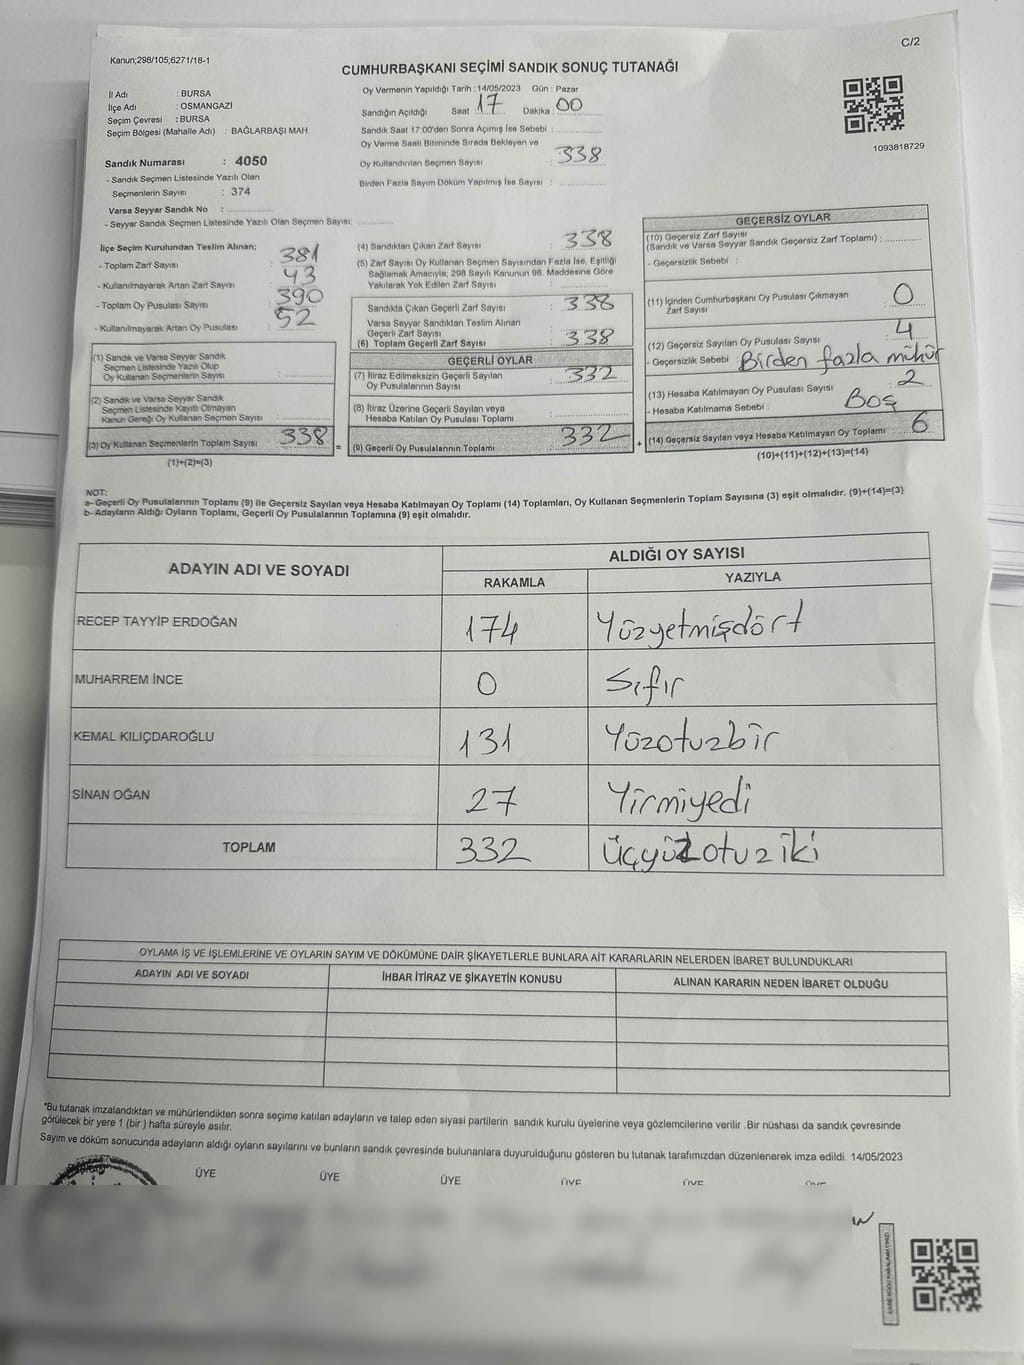 C/2
Kanun;298/105;6271/18-1
CUMHURBAŞKANI SEÇİMİ SANDIK SONUÇ TUTANAĞI
İl Adı : BURSA
İlçe Adı : OSMANGAZİ
Seçim Çevresi : BURSA
Seçim Bölgesi (Mahalle Adı) : BAĞLARBAŞI MAH.
Sandık Numarası : 4050
- Sandık Seçmen Listesinde Yazılı Olan
Seçmenlerin Sayısı : 374
Varsa Seyyar Sandık No :
- Seyyar Sandık Seçmen Listesinde Yazılı Olan Seçmen Sayısı:
Oy Vermenin Yapıldığı Tarih : 14/05/2023 Gün : Pazar
Sandığın Açıldığı Saat : 17 Dakika : 00
Sandık Saat 17:00'den Sonra Açımış İse Sebebi :
Oy Verme Saati Bitiminde Sırada Bekleyen ve
Oy Kullandırılan Seçmen Sayısı : 338
Birden Fazla Sayım Döküm Yapılmış İse Sayısı :
1093818729
İlçe Seçim Kurulundan Teslim Alınan;
- Toplam Zarf Sayısı : 381
- Kullanılmayarak Artan Zarf Sayısı : 43
- Toplam Oy Pusulası Sayısı : 390
- Kullanılmayarak Artan Oy Pusulası : 52
(1) Sandık ve Varsa Seyyar Sandık
Seçmen Listesinde Yazılı Olup
Oy Kullanan Seçmenlerin Sayısı :
(2) Sandık ve Varsa Seyyar Sandık
Seçmen Listesinde Kayıtlı Olmayan
Kanun Gereği Oy Kullanan Seçmen Sayısı :
(3) Oy Kullanan Seçmenlerin Toplam Sayısı : 338
(1)+(2)=(3)
=
(4) Sandıktan Çıkan Zarf Sayısı : 338
(5) Zarf Sayısı Oy Kullanan Seçmen Sayısından Fazla İse, Eşitliği
Sağlamak Amacıyla; 298 Sayılı Kanunun 98. Maddesine Göre
Yakılarak Yok Edilen Zarf Sayısı :
Sandıkta Çıkan Geçerli Zarf Sayısı : 338
Varsa Seyyar Sandıktan Teslim Alınan
Geçerli Zarf Sayısı :
(6) Toplam Geçerli Zarf Sayısı : 338
GEÇERLİ OYLAR
(7) İtiraz Edilmeksizin Geçerli Sayılan
Oy Pusulalarının Sayısı : 332
(8) İtiraz Üzerine Geçerli Sayılan veya
Hesaba Katılan Oy Pusulası Toplamı :
(9) Geçerli Oy Pusulalarının Toplamı : 332
+
GEÇERSİZ OYLAR
(10) Geçersiz Zarf Sayısı
(Sandık ve Varsa Seyyar Sandık Geçersiz Zarf Toplamı) :
- Geçersizlik Sebebi :
(11) İçinden Cumhurbaşkanı Oy Pusulası Çıkmayan
Zarf Sayısı : 0
(12) Geçersiz Sayılan Oy Pusulası Sayısı : 4
- Geçersizlik Sebebi : Birden fazla mühür
(13) Hesaba Katılmayan Oy Pusulası Sayısı : 2
- Hesaba Katılmama Sebebi : Boş
(14) Geçersiz Sayılan veya Hesaba Katılmayan Oy Toplamı : 6
(10)+(11)+(12)+(13)=(14)
NOT:
a- Geçerli Oy Pusulalarının Toplamı (9) ile Geçersiz Sayılan veya Hesaba Katılmayan Oy Toplamı (14) Toplamları, Oy Kullanan Seçmenlerin Toplam Sayısına (3) eşit olmalıdır. (9)+(14)=(3)
b- Adayların Aldığı Oyların Toplamı, Geçerli Oy Pusulalarının Toplamına (9) eşit olmalıdır.
ADAYIN ADI VE SOYADI ALDIĞI OY SAYISI
RAKAMLA YAZIYLA
RECEP TAYYİP ERDOĞAN 174 Yüzyetmişdört
MUHARREM İNCE 0 Sıfır
KEMAL KILIÇDAROĞLU 131 Yüzotuzbir
SİNAN OĞAN 27 Yirmiyedi
TOPLAM 332 Üçyüzotuziki
OYLAMA İŞ VE İŞLEMLERİNE VE OYLARIN SAYIM VE DÖKÜMÜNE DAİR ŞİKAYETLERLE BUNLARA AİT KARARLARIN NELERDEN İBARET BULUNDUKLARI
ADAYIN ADI VE SOYADI İHBAR İTİRAZ VE ŞİKAYETİN KONUSU ALINAN KARARIN NEDEN İBARET OLDUĞU
*Bu tutanak imzalandıktan ve mühürlendikten sonra seçime katılan adayların ve talep eden siyasi partilerin sandık kurulu üyelerine veya gözlemcilerine verilir .Bir nüshası da sandık çevresinde
görülecek bir yere 1 (bir ) hafta süreyle asılır.
Sayım ve döküm sonucunda adayların aldığı oyların sayılarını ve bunların sandık çevresinde bulunanlara duyurulduğunu gösteren bu tutanak tarafımızdan düzenlenerek imza edildi. 14/05/2023
ÜYE ÜYE ÜYE ÜYE ÜYE ÜYE